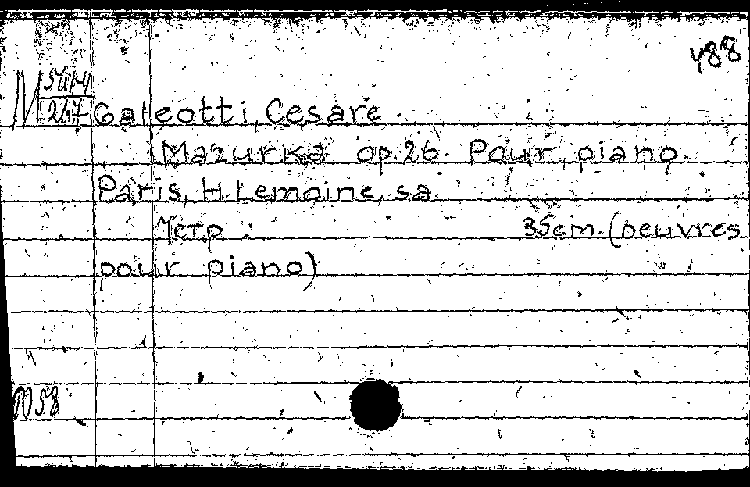 488
M 5414
267
Galeotti, Cesare.
Mazurka op.26. Pour piano.
Paris, H. Lemoine, sa
35cm. (oeuvres
pour piano)
M58